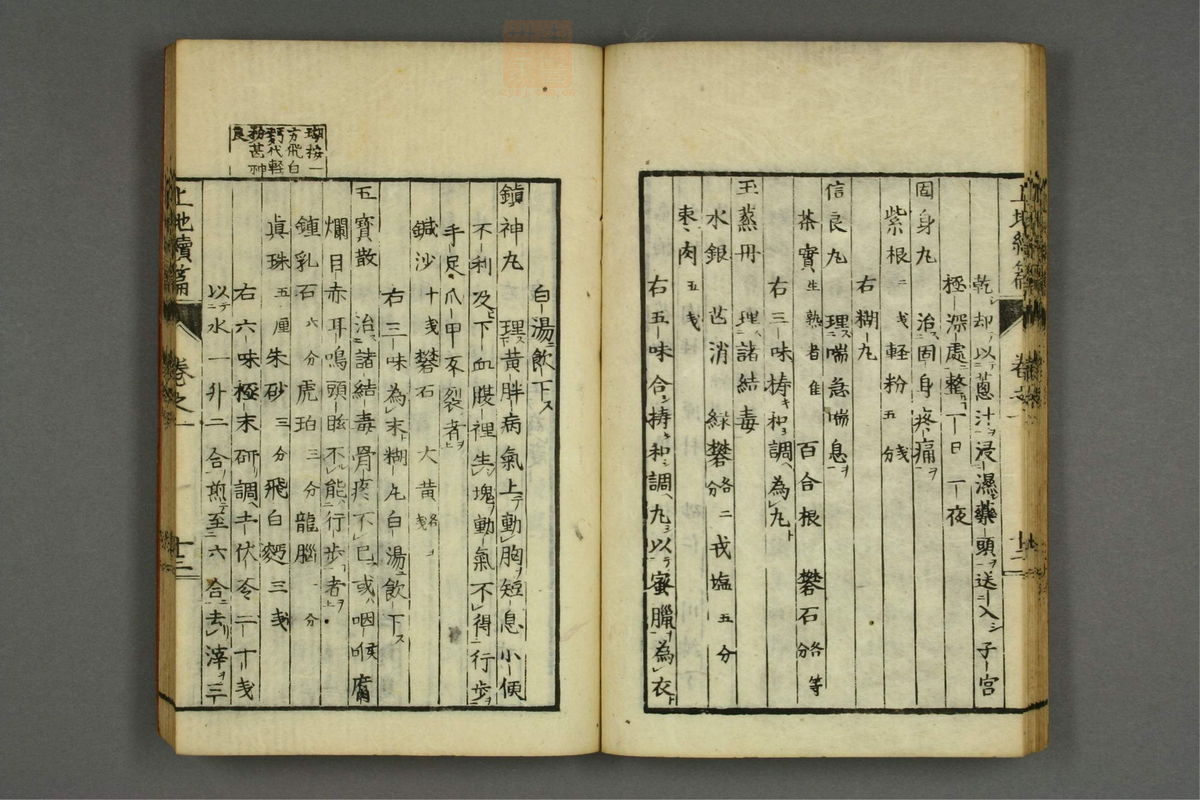 乾却以葱汁浸濕藥頭送入子宮
極深處整一日一夜
固身丸 治固身疼痛
紫根二戔 輕粉五分
右糊丸
信良丸 理喘急喘息
茶實生熟者佳 百合根 礬石各等分
右三味擣和調為丸
玉蒸丹 理諸結毒
水銀 芒消 緑礬各二分 戎塩五分
枣肉五戔
右五味合擣和調丸以蜜臘為衣
卷之一
十二
白湯飲下
鎮神丸 理黄胖病氣上動胸短息小便
不利及下血腹裡生塊動氣不得行歩
手足爪甲反裂者
鍼沙十戔 礬石 大黄各戔
右三味為末糊丸白湯飲下
五寳散 治諸結毒骨疼不已或咽喉腐
爛目赤耳鳴頭眩不能行歩者
鍾乳石六分 虎珀三分 龍腦一分
眞珠五厘 朱砂三分 飛白麪三戔
右六味極末研調土伏苓二十戔
以水一升二合煎至六合去滓三
按一
方飛白
麪代輕
粉甚神
良
上池續篇
卷之一
十三